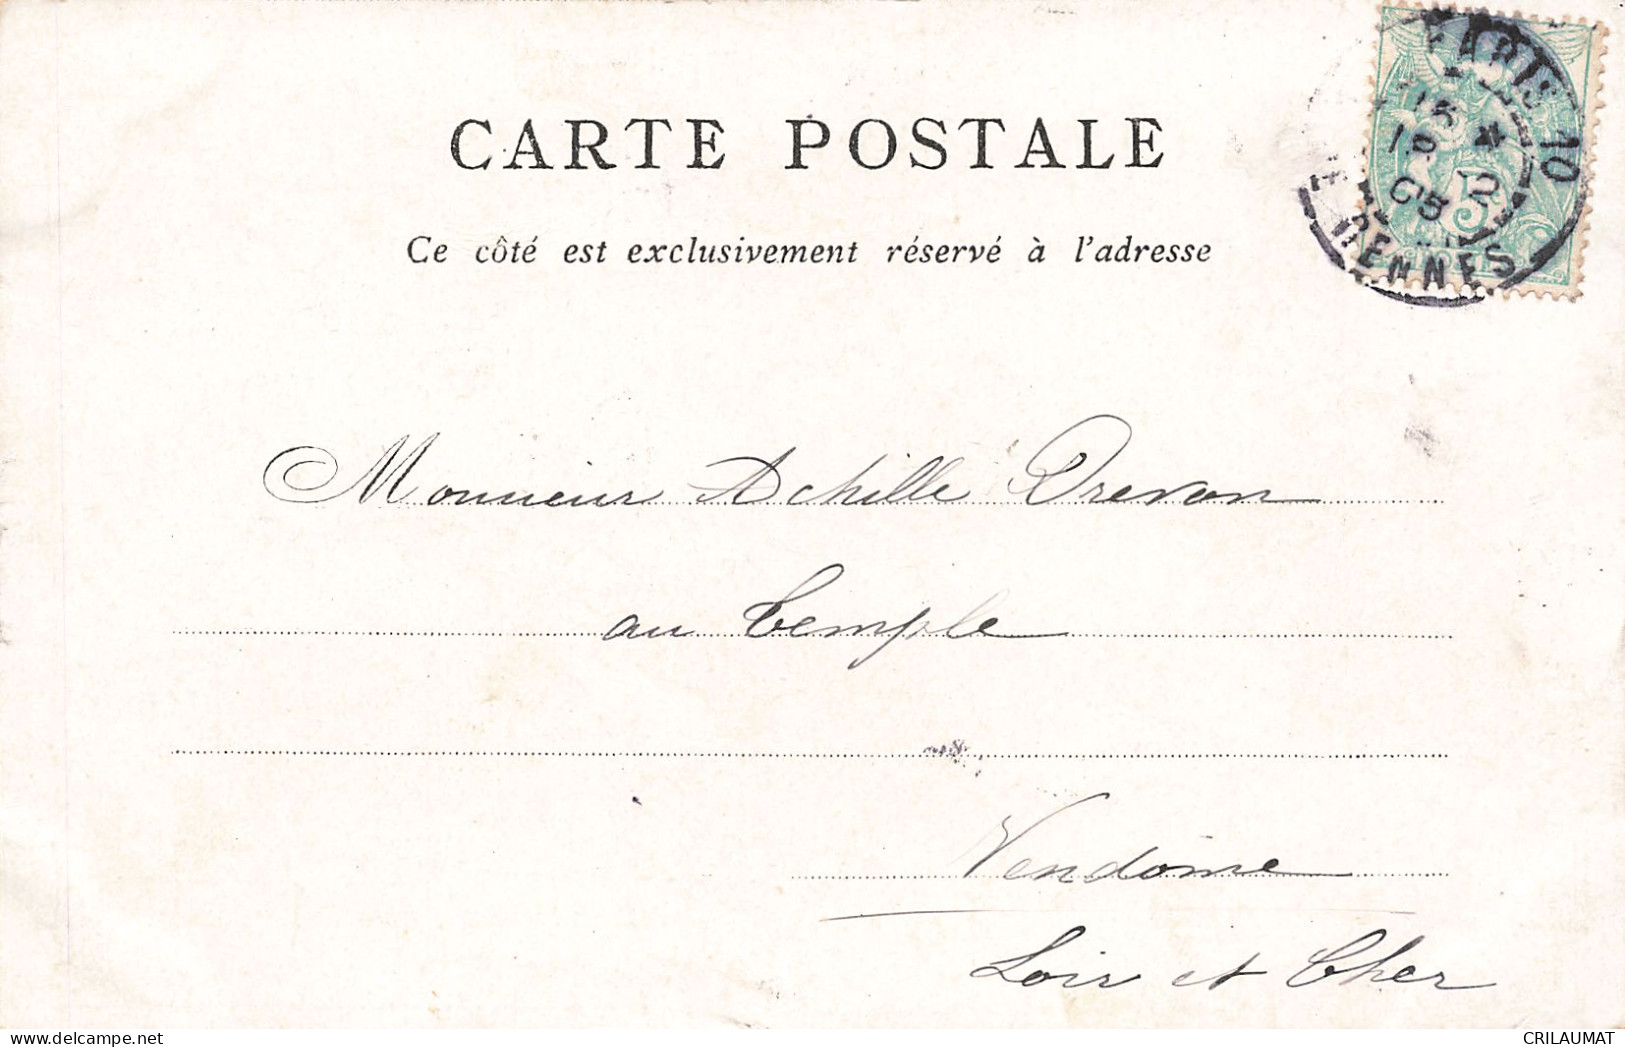 CARTE POSTALE
Ce côté est exclusivement réservé à l'adresse
PARIS 10
RENNES
5
Monsieur Achille Drevon
au Temple
Vendôme
Loir et Cher
CRILAUMAT